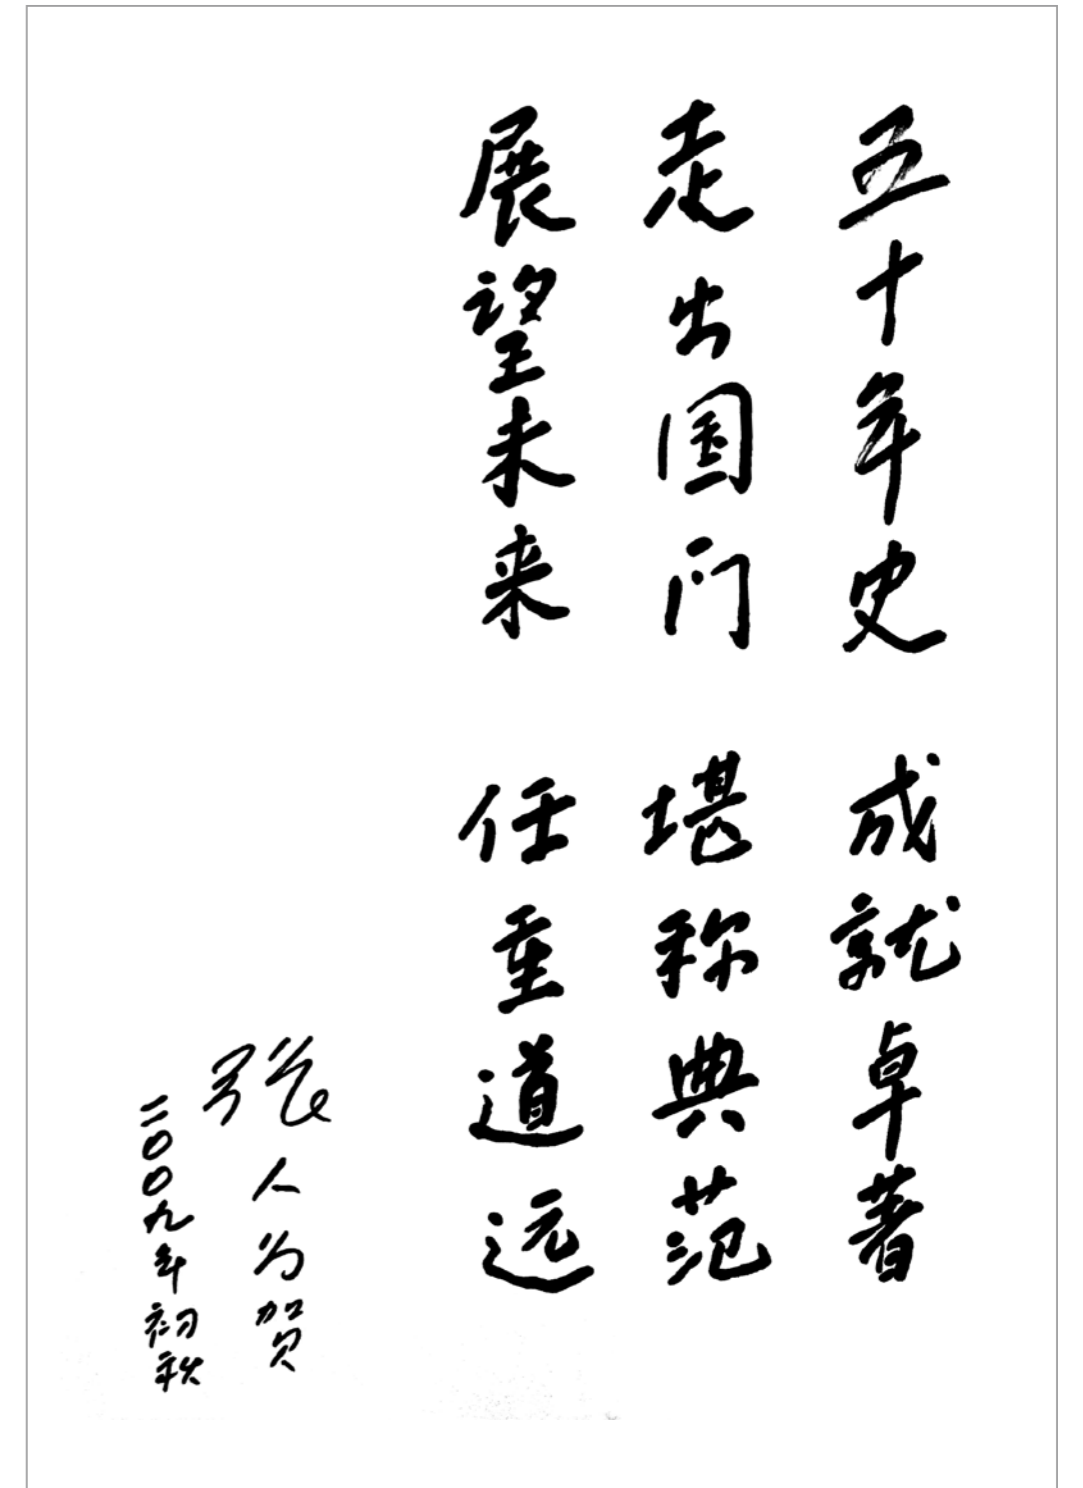 五十年史 成就卓著
走出国门 堪称典范
展望未来 任重道远
张人为贺
二〇〇九年初秋